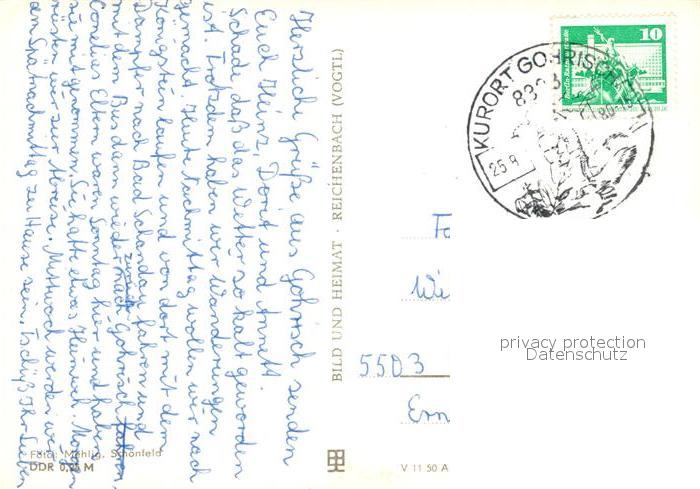 Herzliche Grüße aus Gohrisch senden
Euch Heinz, Dorit und Annett.
Schade daß das Wetter so kalt geworden
ist. Trotzdem haben wir Wanderungen
gemacht. Heute Nachmittag wollen wir nach
Königstein laufen und von dort mit dem
Dampfer nach Bad Schandau fahren und
mit dem Bus dann wieder zurück nach Gohrisch fahren.
Eltern waren Sonntag hier und haben
sie mit genommen. Sie hatte etwas Heimweh. Morgen
rüsten wir zur Abreise. Mittwoch werden wir
am Spätnachmittag zu Hause sein. Tschüß Ihr Lieben
Foto: Mühlig, Schönfeld
DDR 0,25 M
BILD UND HEIMAT · REICHENBACH (VOGTL)
V 11 50 A
10
KURORT GOHRISCH
25.8
Fa
Wi
5503
Ern
privacy protection
Datenschutz